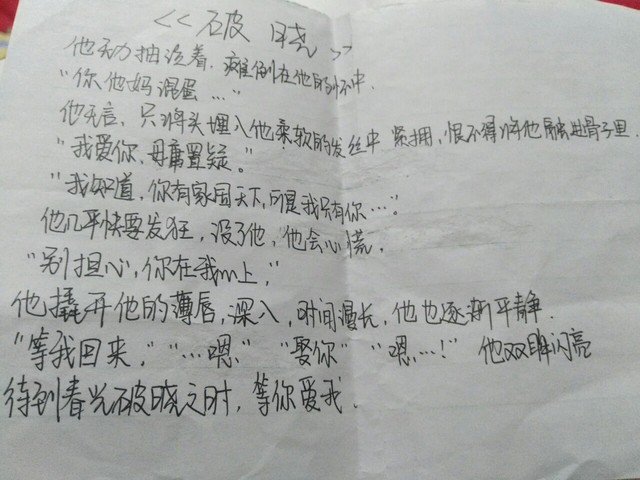 <<破晓>>
他无力抽泣着，瘫倒在他的怀中.
"你他妈混蛋…"
他无言，只将头埋入他柔软的发丝中 紧拥，恨不得将他融进骨子里.
"我爱你，毋庸置疑。"
"我知道，你有家国天下，可是我只有你…"
他几乎快要发狂，没了他，他会心慌.
"别担心，你在我心上，"
他撬开他的薄唇，深入，时间漫长，他也逐渐平静.
"等我回来，" "…嗯，" "娶你" "嗯，…！" 他双眸闪亮
待到春光破晓之时，等你爱我.